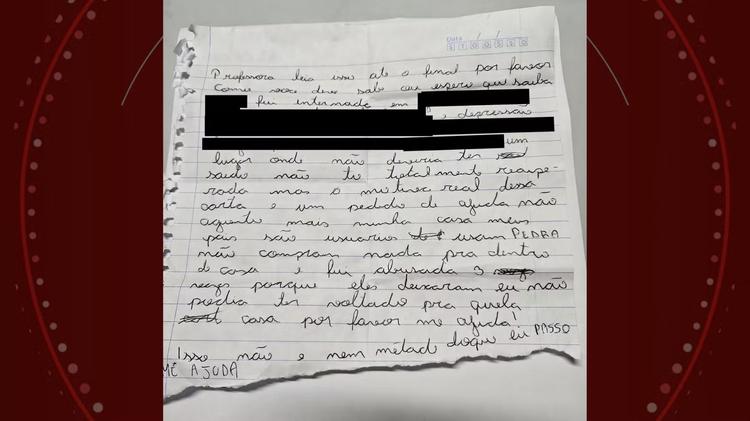 Data / /
S T Q Q S S D
Professora leia isso até o final por favor
Como voce deve sabe ou espero que saiba
fui internada em
e depressão
um
lugar onde não deveria ter
saido não to totalmente recupe-
rada mas o motivo real dessa
carta e um pedido de ajuda não
aguento mais minha casa meus
pais são usuarios usam PEDRA
não compram nada pra dentro
de casa e fui abusada 3
vezes porque eles deixaram eu não
podia ter voltado pra quela
casa por favor me ajuda!
Isso não e nem metade doque eu PASSO
ME AJUDA